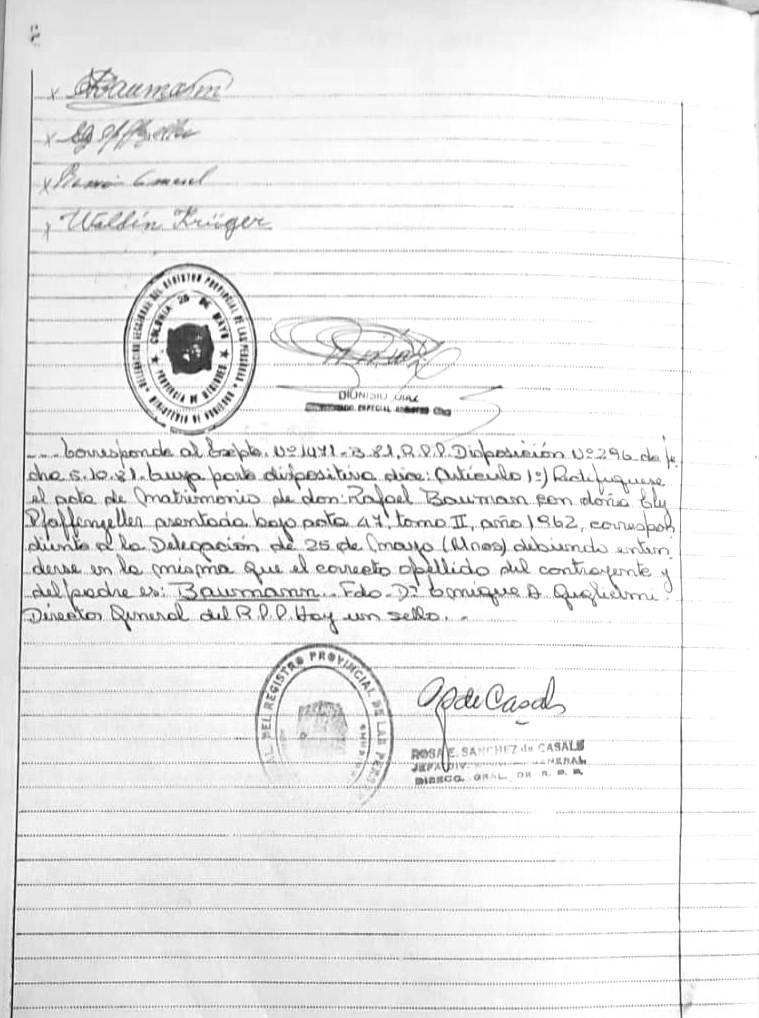 x Baumann
x
x Ramón
x Waldín Krüger
DELEGACION SECCIONAL DEL REGISTRO PROVINCIAL DE LAS PERSONAS
COLONIA 25 DE MAYO
PROVINCIA DE MISIONES
MINISTERIO DE GOBIERNO
DIONISIO DIAZ
ESPECIAL REGISTRO CIVIL
.... Corresponde al Expte. Nº 1471-3.81, R.P.P. Disposición Nº 296 de fe
cha 5.10.81. Cuya parte dispositiva dice: Artículo 1º) Rectifíquese
el acta de Matrimonio de don: Rafael Bauman con doña Ely
Pfaffenzeller asentada bajo acta 47, tomo II, año 1962, correspon
diente a la Delegación de 25 de Mayo (Mnes) debiendo enten
derse en la misma que el correcto apellido del contrayente y
del padre es: Baumann. Fdo. Dr Enrique A. Guglielmi.
Director General del R.P.P. Hay un sello. -
AL DEL REGISTRO PROVINCIAL DE LAS PERS
de Casals
ROSA E. SANCHEZ de CASALS
JEFA DIV. GENERAL
DIRECC. GRAL. DE R. P. P.